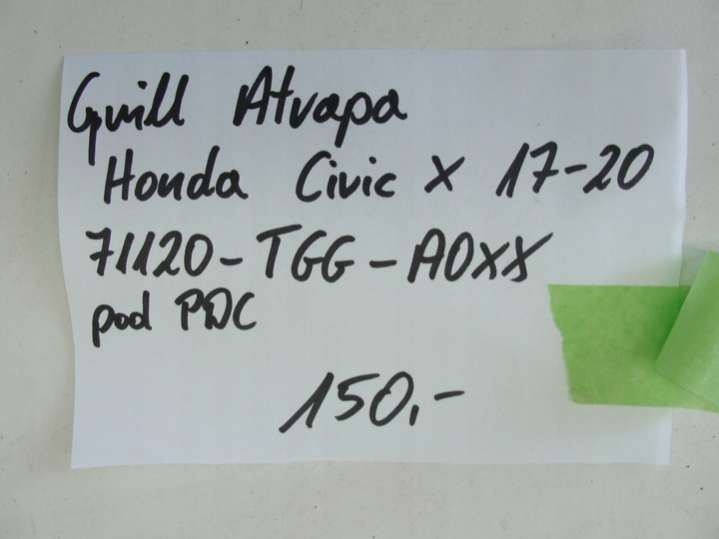 Grill Atrapa
Honda Civic X 17-20
71120-TGG-A0XX
pod PDC
150,-